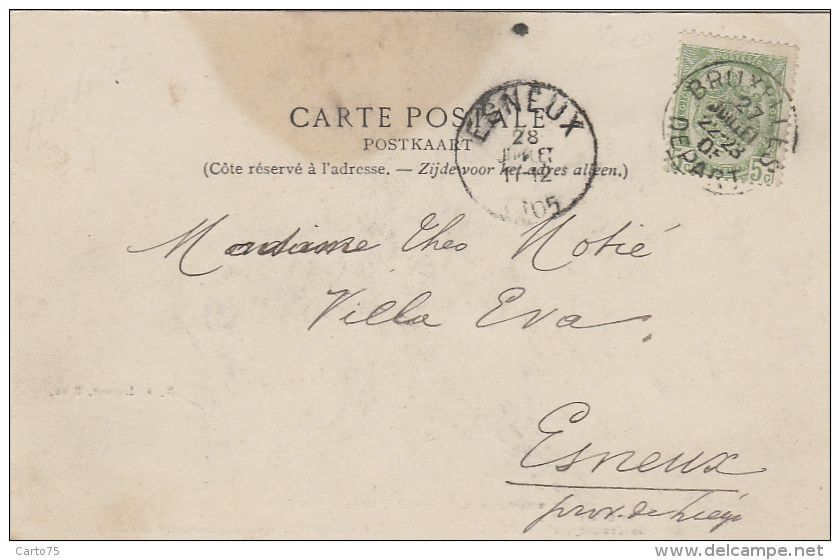 CARTE POSTALE
POSTKAART
(Côte réservé à l'adresse. — Zijde voor het adres alleen.)
ESNEUX
28
JUILLET
11-12
1905
BRUXELLES
27
JUILLET
22-23
05
DÉPART
5c
Madame Theo Notié
Villa Eva.
Esneux
prov. de Liége
Carto75
www.delcampe.net